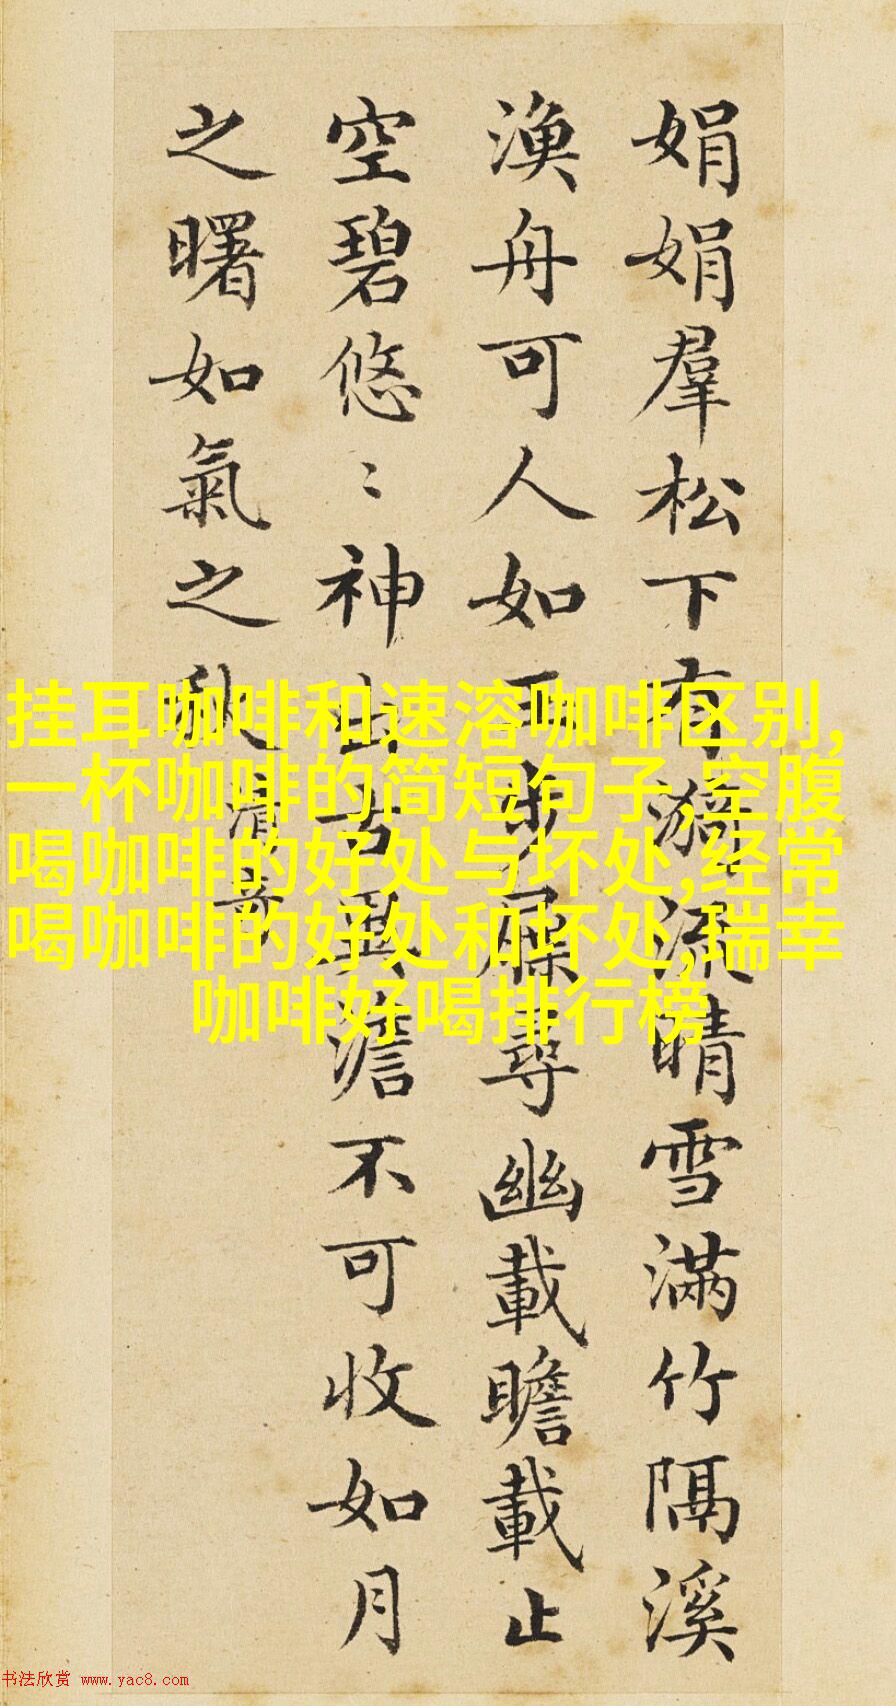 娟娟羣松下有漪流晴雪滿竹隔溪
漁舟可人如玉步屧尋幽載瞻載止
空碧悠〻神出古異澹不可收如月
之曙如氣之秋
清奇
挂耳咖啡和速溶咖啡区别,
一杯咖啡的简短句子,空腹
喝咖啡的好处与坏处,经常
喝咖啡的好处和坏处,瑞幸
咖啡好喝排行榜
书法欣赏 www.yac8.com